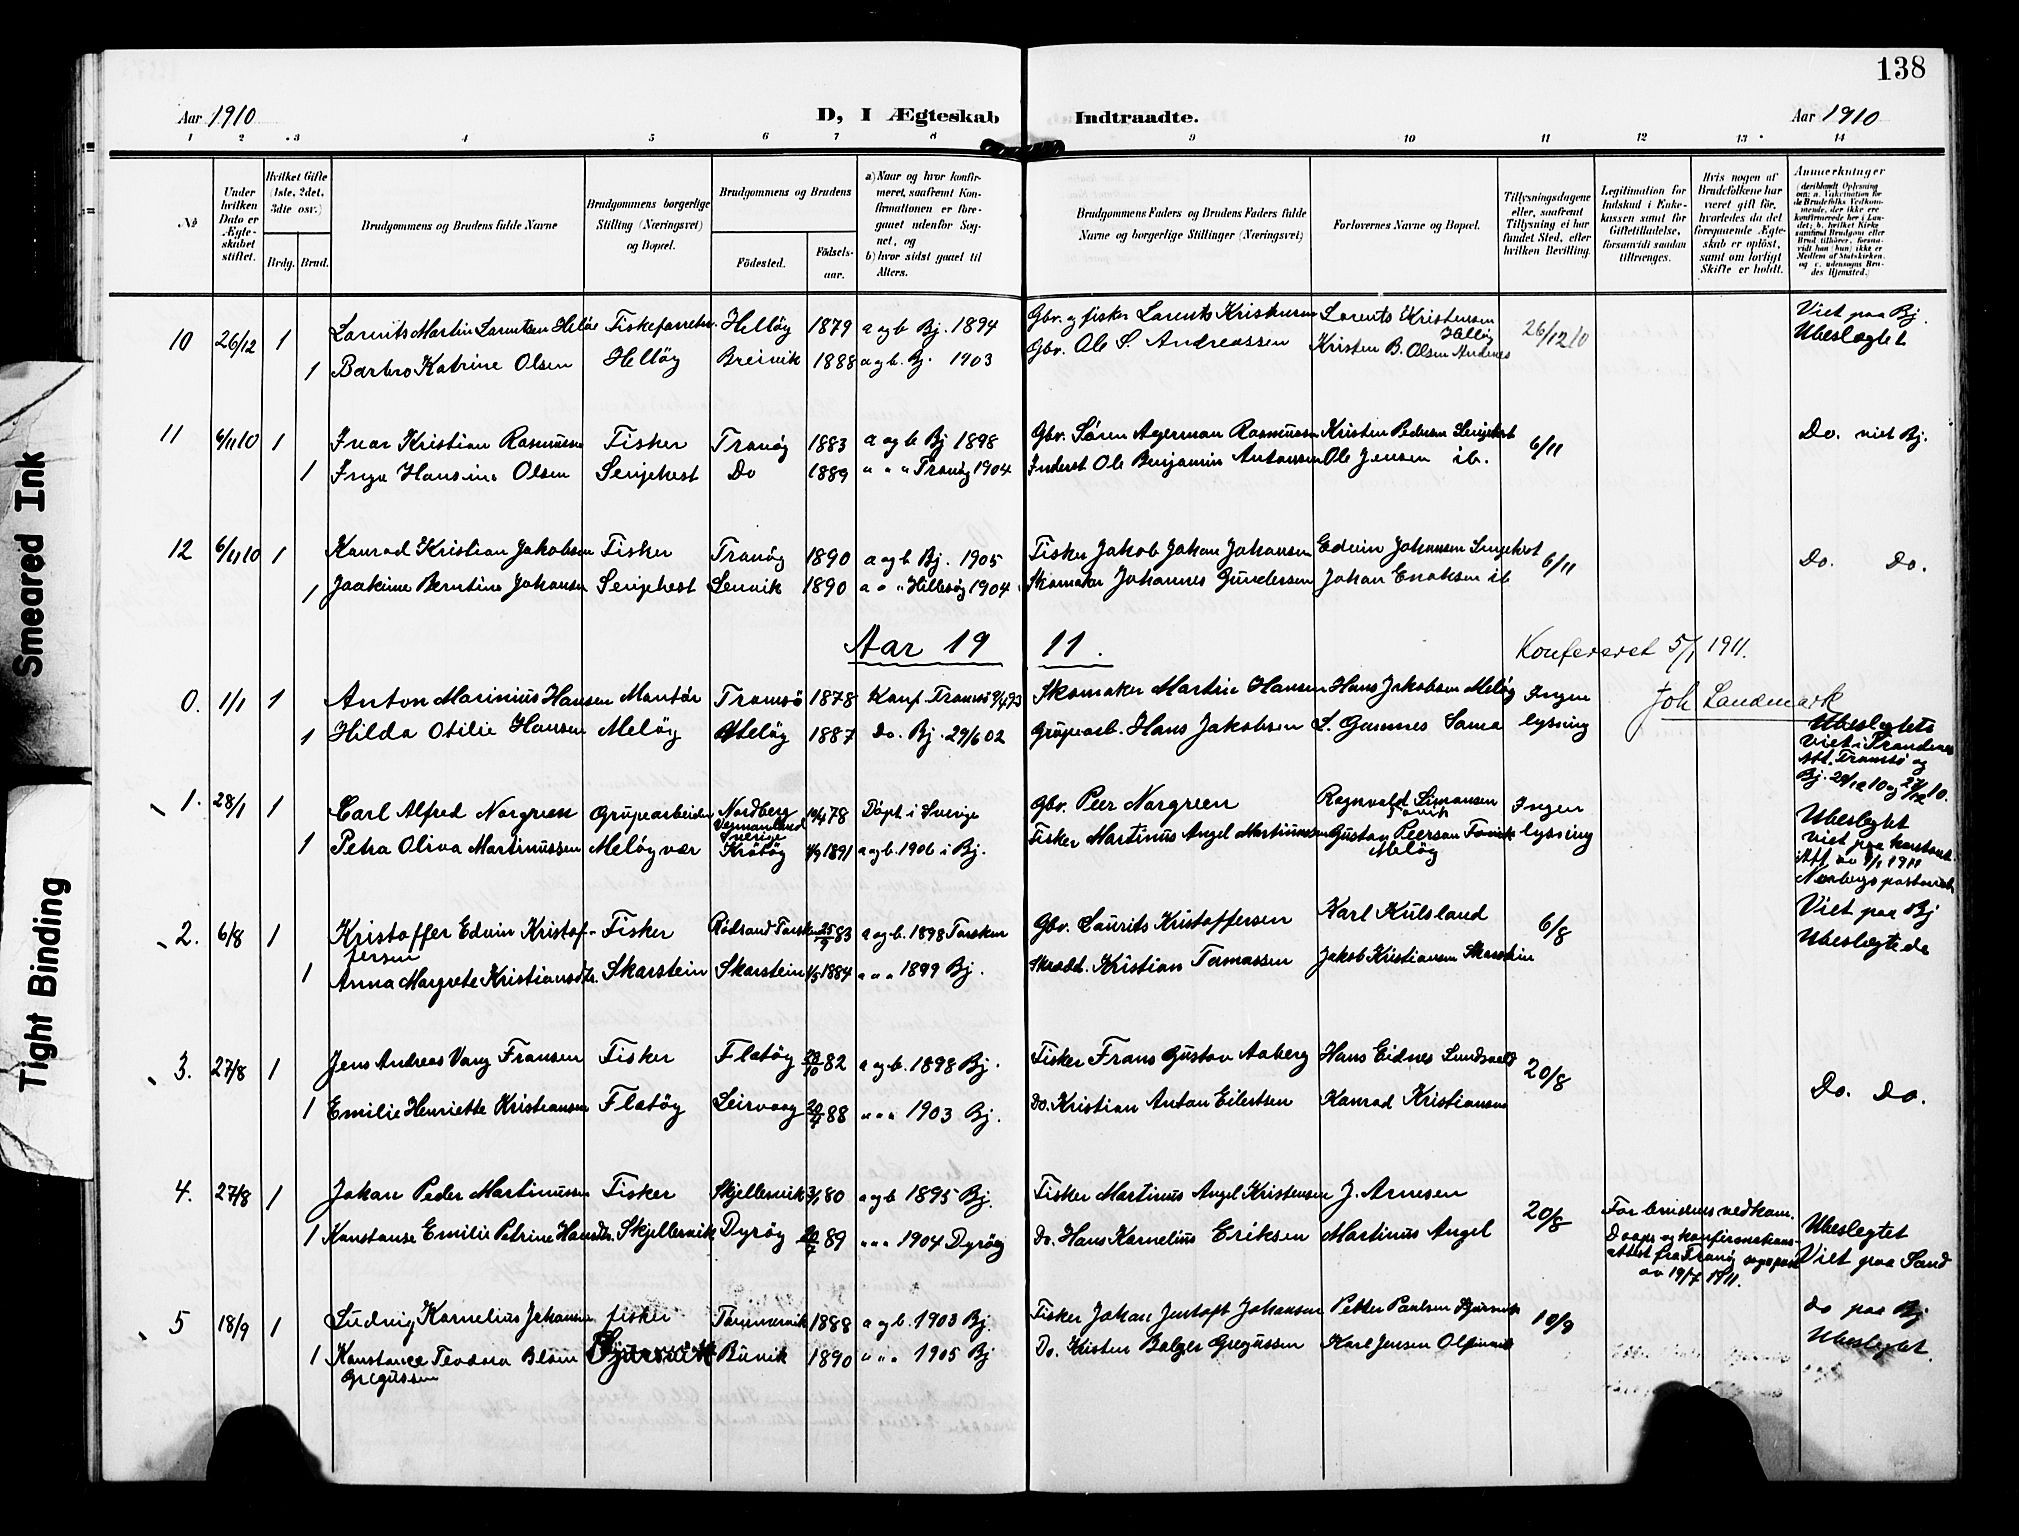 138
Aar 1910
D, I Ægteskab Indtraadte.
Aar 1910
1 2 3 4 5 6 7 8 9 10 11 12 13 14
№
Under hvilken Dato er Ægteskabet stiftet.
Hvilket Gifte (1ste, 2det, 3die osv.)
Brdg. Brud.
Brudgommens og Brudens fulde Navne
Brudgommens borgerlige Stilling (Næringsvei) og Bopæl.
Brudgommens og Brudens
Fødested. Fødsels-aar.
a) Naar og hvor konfirmeret, saafremt Konfirmationen er foregaaet udenfor Sognet, og
b) hvor sidst gaaet til Alters.
Brudgommens Faders og Brudens Faders fulde Navne og borgerlige Stillinger (Næringsvei)
Forlovernes Navne og Bopæl.
Tillysningsdagene eller, saafremt Tillysning ei har fundet Sted, efter hvilken Bevilling.
Legitimation for Indskud i Enkekassen samt for Giftetilladelse, forsaavidt saadan tiltrænges.
Hvis nogen af Brudefolkene har været gift før, hvorledes da det foregaaende Ægteskab er opløst, samt om lovligt Skifte er holdt.
Anmærkninger
10 26/12 1 Lorents Martin Lorentsen Heløe Fiskeforretn. Helløy 1879 a og b Bj. 1894 Gbr. og fisker Lorents Kristensen Lorents Kristensen Helløy 26/12 10 Viet paa Bj. Ubeslægtet
1 Barbro Katrine Olsen Helløy Breivik 1888 a og b. Bj. 1903 Gbr. Ole S. Andreassen Kristen B. Olsen Andenes
11 6/11 10 1 Ivar Kristian Rasmussen Fisker Tranøy 1883 a og b Bj 1898 Gbr. Søren Agerman Rasmussen Kristen Pedersen Senjehest 6/11 Do. viet Bj.
1 Inga Hansine Olsen Senjehest Do 1889 " " " Tranøy 1904 Inderst Ole Benjamin Antonsen Ole Jensen ib.
12 6/11 10 1 Konrad Kristian Jakobsen Fisker Tranøy 1890 a og b Bj. 1905 Fisker Jakob Johan Johansen Edvin Johansen Senjehest 6/11 Do. Do.
1 Joakime Berntine Johansen Senjehest Lenvik 1890 a " " Hillesøy 1904 Skomaker Johannes Gundersen Johan Enoksen ib
Aar 1911.
Konfereret 5/1 1911.
Joh Landmark
0. 1/1 1 Anton Marinius Hansen Montør Tromsø 1878 Konf. Tromsø 9/4 93 Skomaker Martin Hansen Hans Jakobsen Meløy Ingen lysning
1 Hilda Otilie Hansen Meløy Meløy 1887 Do. Bj. 29/6 02 Grubearb. Hans Jakobsen S. Gamnes Sama
Ubeslegtets viet i Trondenes Att. Tromsø og Bj. 28/12 10 og 27/12 10.
1. 28/1 1 Carl Alfred Norgreen Grubearbeider Nordberg Vermanland Sverige 78 Døpt i Sverige Gbr. Peer Norgreen Ragnvald Simonsen Ingen lysning
1 Petra Oliva Martinussen Meløyvær Krøtøy 1891 a og b. 1906 i Bj. Fisker Martinus Angel Martinussen Gustav Peerson Meløy
Ubeslegtet viet paa kontoret Att. av 9/1 1911
2. 6/8 1 Kristoffer Edvin Kristoffersen Fisker Rødsand Torsken 25/9 83 a og b. 1898 Torsken Gbr. Laurits Kristoffersen Karl Kulsland 6/8 Viet paa Bj
1 Anna Margrete Kristiansdtr. Skarstein Skarstein 1884 a " " 1899 Bj. Skrædd. Kristian Tomassen Jakob Kristiansen Skarstein Ubeslegtede
3. 27/8 1 Jens Andreas Vang Fransen Fisker Flatøy 20/10 82 a og b. 1898 Bj. Fisker Frans Gustav Aaberg Hans Eidnes Lundsvold 20/8 Do. Do.
1 Emilie Henriette Kristiansen Flatøy Leirvaag 88 " " " 1903 Bj. Do. Kristian Antan Eilertsen Konrad Kristiansen
4. 27/8 1 Johan Peder Martinussen Fisker Skjellesvik 3/1 80 a og b 1895 Bj. Fisker Martinus Angel Kristensen J. Arnesen 20/8
1 Konstanse Emilie Petrine Hansdtr. Skjellesvik Dyrøy 89 " " " 1904 Dyrøy Do. Hans Kornelius Eriksen Martinus Angel
For brudens vedkom. Daaps og konfirmations-attest fra Tranøy sogneprest av 19/7 1911.
Ubeslegtet Viet paa Sand
5 18/9 1 Ludvig Kornelius Johansen fisker Tommervik 1888 a og b. 1903 Bj. Fisker Johan Jentoft Johansen Petter Paulsen 10/9 do paa Bj
1 Konstance Teodora Blom Gregussen Buvik 1890 " " " 1905 Bj Do. Kristen Bolger Gregussen Karl Jensen Ubeslegtet.
Smeared Ink
Tight Binding